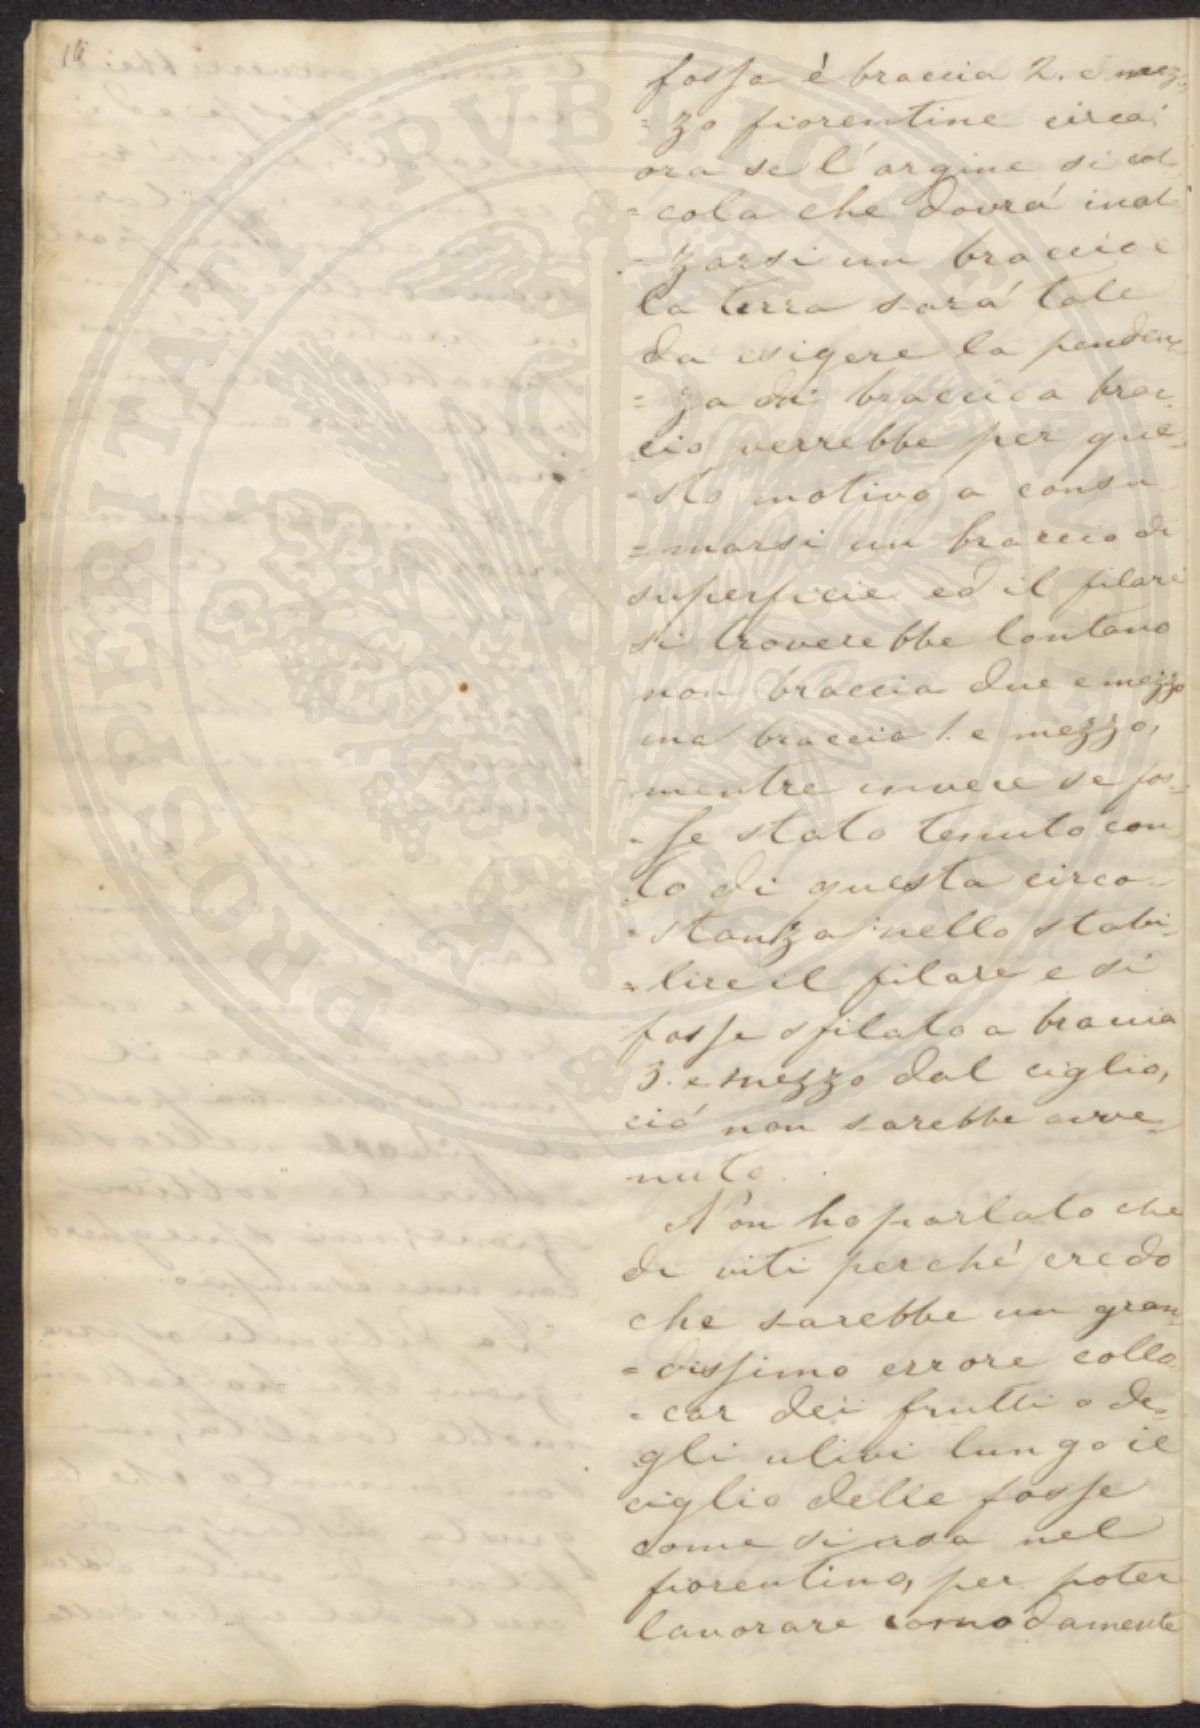 fossa è braccia 2. e mez-
=zo fiorentine circa;
ora se l'argine si cal-
=cola che dovrà inal-
=zarsi un braccio e
la terra sarà tale
da esigere la penden-
=za di braccio a brac-
cio verrebbe per que-
-sto motivo a consu-
=marsi un braccio di
superficie ed il filare
si troverebbe lontano
non braccia due e mezzo
ma braccia 1. e mezzo,
mentre invece se fos-
-se stato tenuto con-
to di questa circo-
-stanza nello stabi-
=lire il filare e si
fosse sfilato a braccia
3. e mezzo dal ciglio,
ciò non sarebbe avve-
nuto.
Non ho parlato che
di viti perché credo
che sarebbe un gran-
=dissimo errore collo-
-car dei frutti o de-
gli ulivi lungo il
ciglio delle fosse
come si usa nel
fiorentino, per poter
lavorare comodamente
PROSPERITATI PVBLICAE